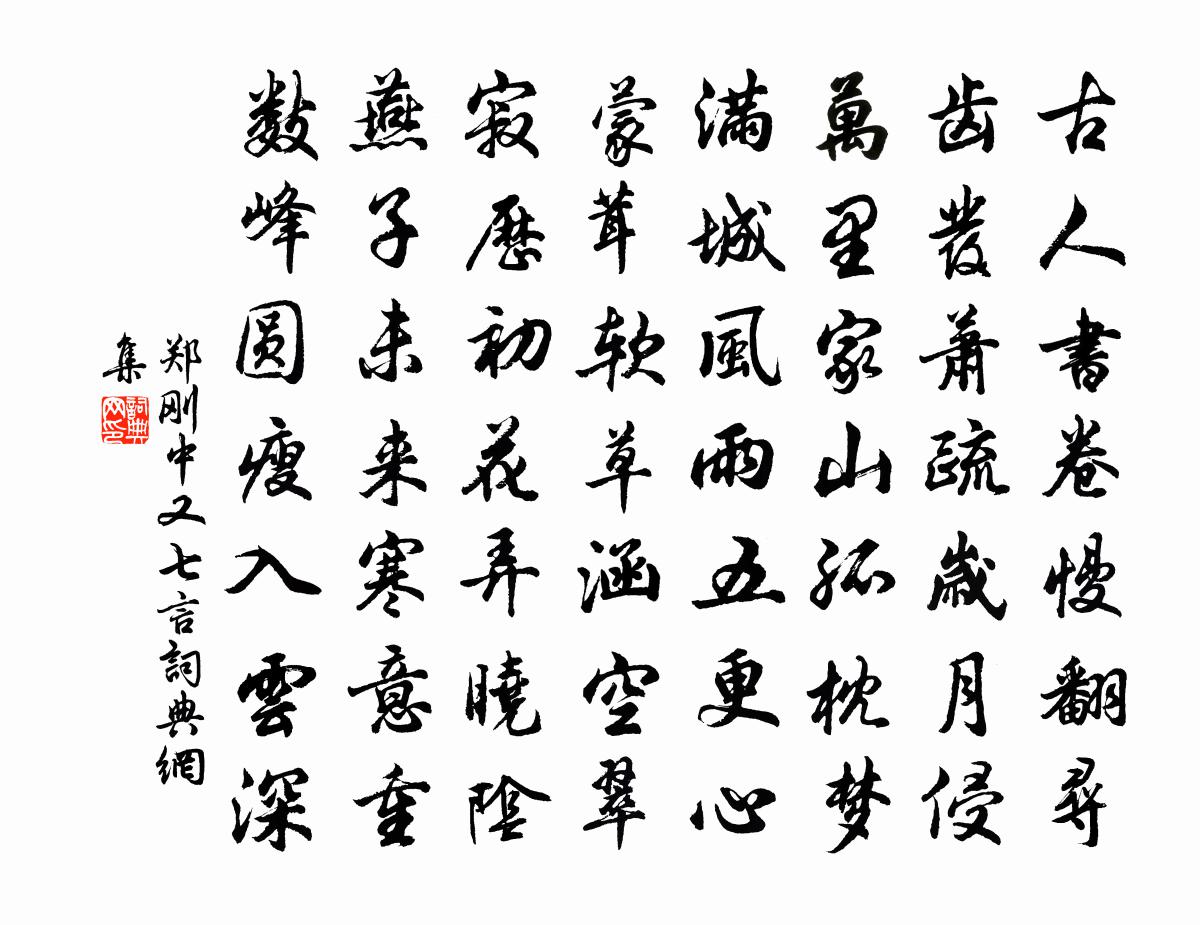 古人書卷慢翻尋
齿發蕭疏歲月侵
萬里家山孤枕梦
滿城風雨五更心
蒙茸软草涵空翠
寂歷初花弄曉陰
燕子未来寒意重
数峰圆瘦入雲深
郑刚中又七言詞典網
集
詞典
网印